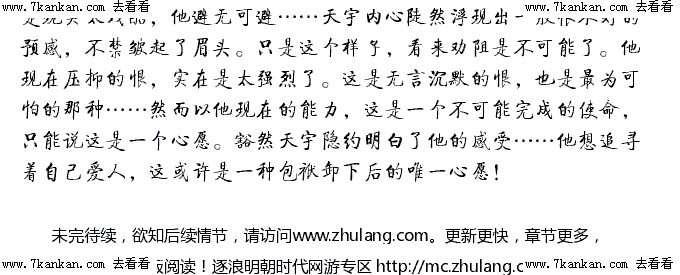 www.7kankan.com 去看看 www.7kankan.com 去看看 www.7kankan.com 去看看
他避无可避……天宇内心陡然浮现出一股很不好的
预感，不禁皱起了眉头。只是这个样子，看来劝阻是不可能了。他
现在压抑的恨，实在是太强烈了。这是无言沉默的恨，也是最为可
怕的那种……然而以他现在的能力，这是一个不可能完成的使命，
只能说这是一个心愿。豁然天宇隐约明白了他的感受……他想追寻
着自己爱人，这或许是一种包袱卸下后的唯一心愿！
未完待续，欲知后续情节，请访问www.zhulang.com。更新更快，章节更多，
www.7kankan.com 去看看 www.7kankan.com 去看看 www.7kankan.com 去看看
阅读！逐浪明朝时代网游专区 http://mc.zhulang.c